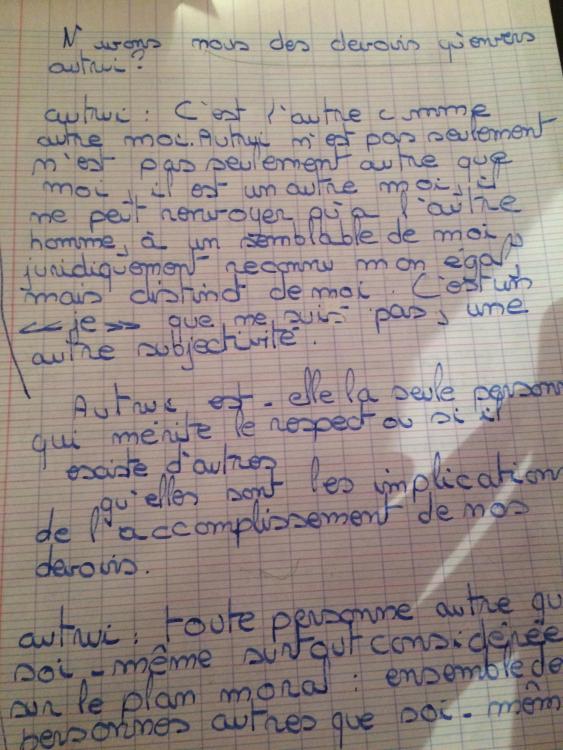 N'avons nous des devoirs qu'envers
autrui?
autrui : C'est l'autre comme
autre moi. Autrui n'est pas seulement
n'est pas seulement autre que
moi, il est un autre moi, il
ne peut renvoyer qu'à l'autre
homme, à un semblable de moi,
juridiquement reconnu mon égal
mais distinct de moi. C'est un
<< je >> que ne suis pas, une
autre subjectivité.
Autrui est-elle la seule personn
qui mérite le respect ou si il
existe d'autres
qu'elles sont les implication
de l'accomplissement de nos
devoirs.
autrui : toute personne autre qu
soi-même surtout considérée
sur le plan moral : ensemble de
personnes autres que soi-mêm